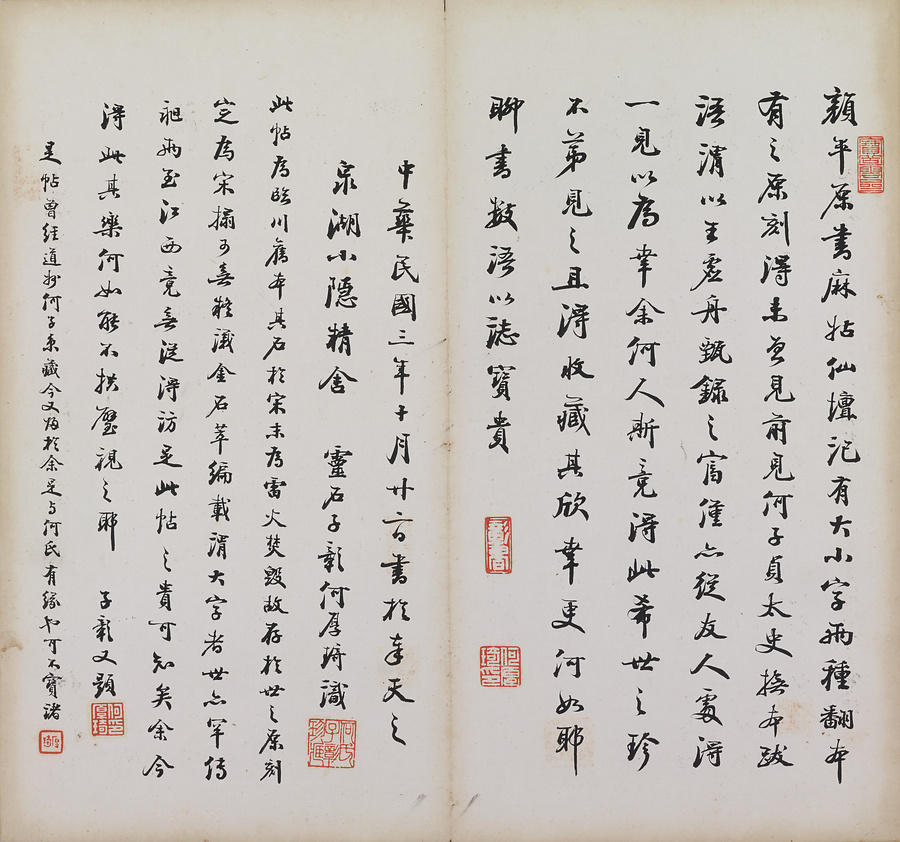 顏平原書麻姑仙壇記有大小字兩種翻本
有之原刻得未曾見前見何子貞太史撫本跋
語謂以王虛舟甄錄之富僅亦從友人處得
一見以為幸余何人斯竟得此希世之珍
不第見之且得收藏其欣幸更何如耶
聊書數語以誌寶貴
中華民國三年十月廿六日書於奉天之
泉湖小隱精舍 靈石子彰何厚琦識
此帖為臨川舊本其石於宋末為雷火焚毀故存於世之原刻
定為宋搨可無疑議金石萃編載謂大字者世亦罕傳
祖兩至江西竟無從得訪是此帖之貴可知矣余今
得此其樂何如能不拱璧視之耶 子彰又題
是帖曾經道州何子貞藏今又歸於余是与何氏有緣也可不寶諸